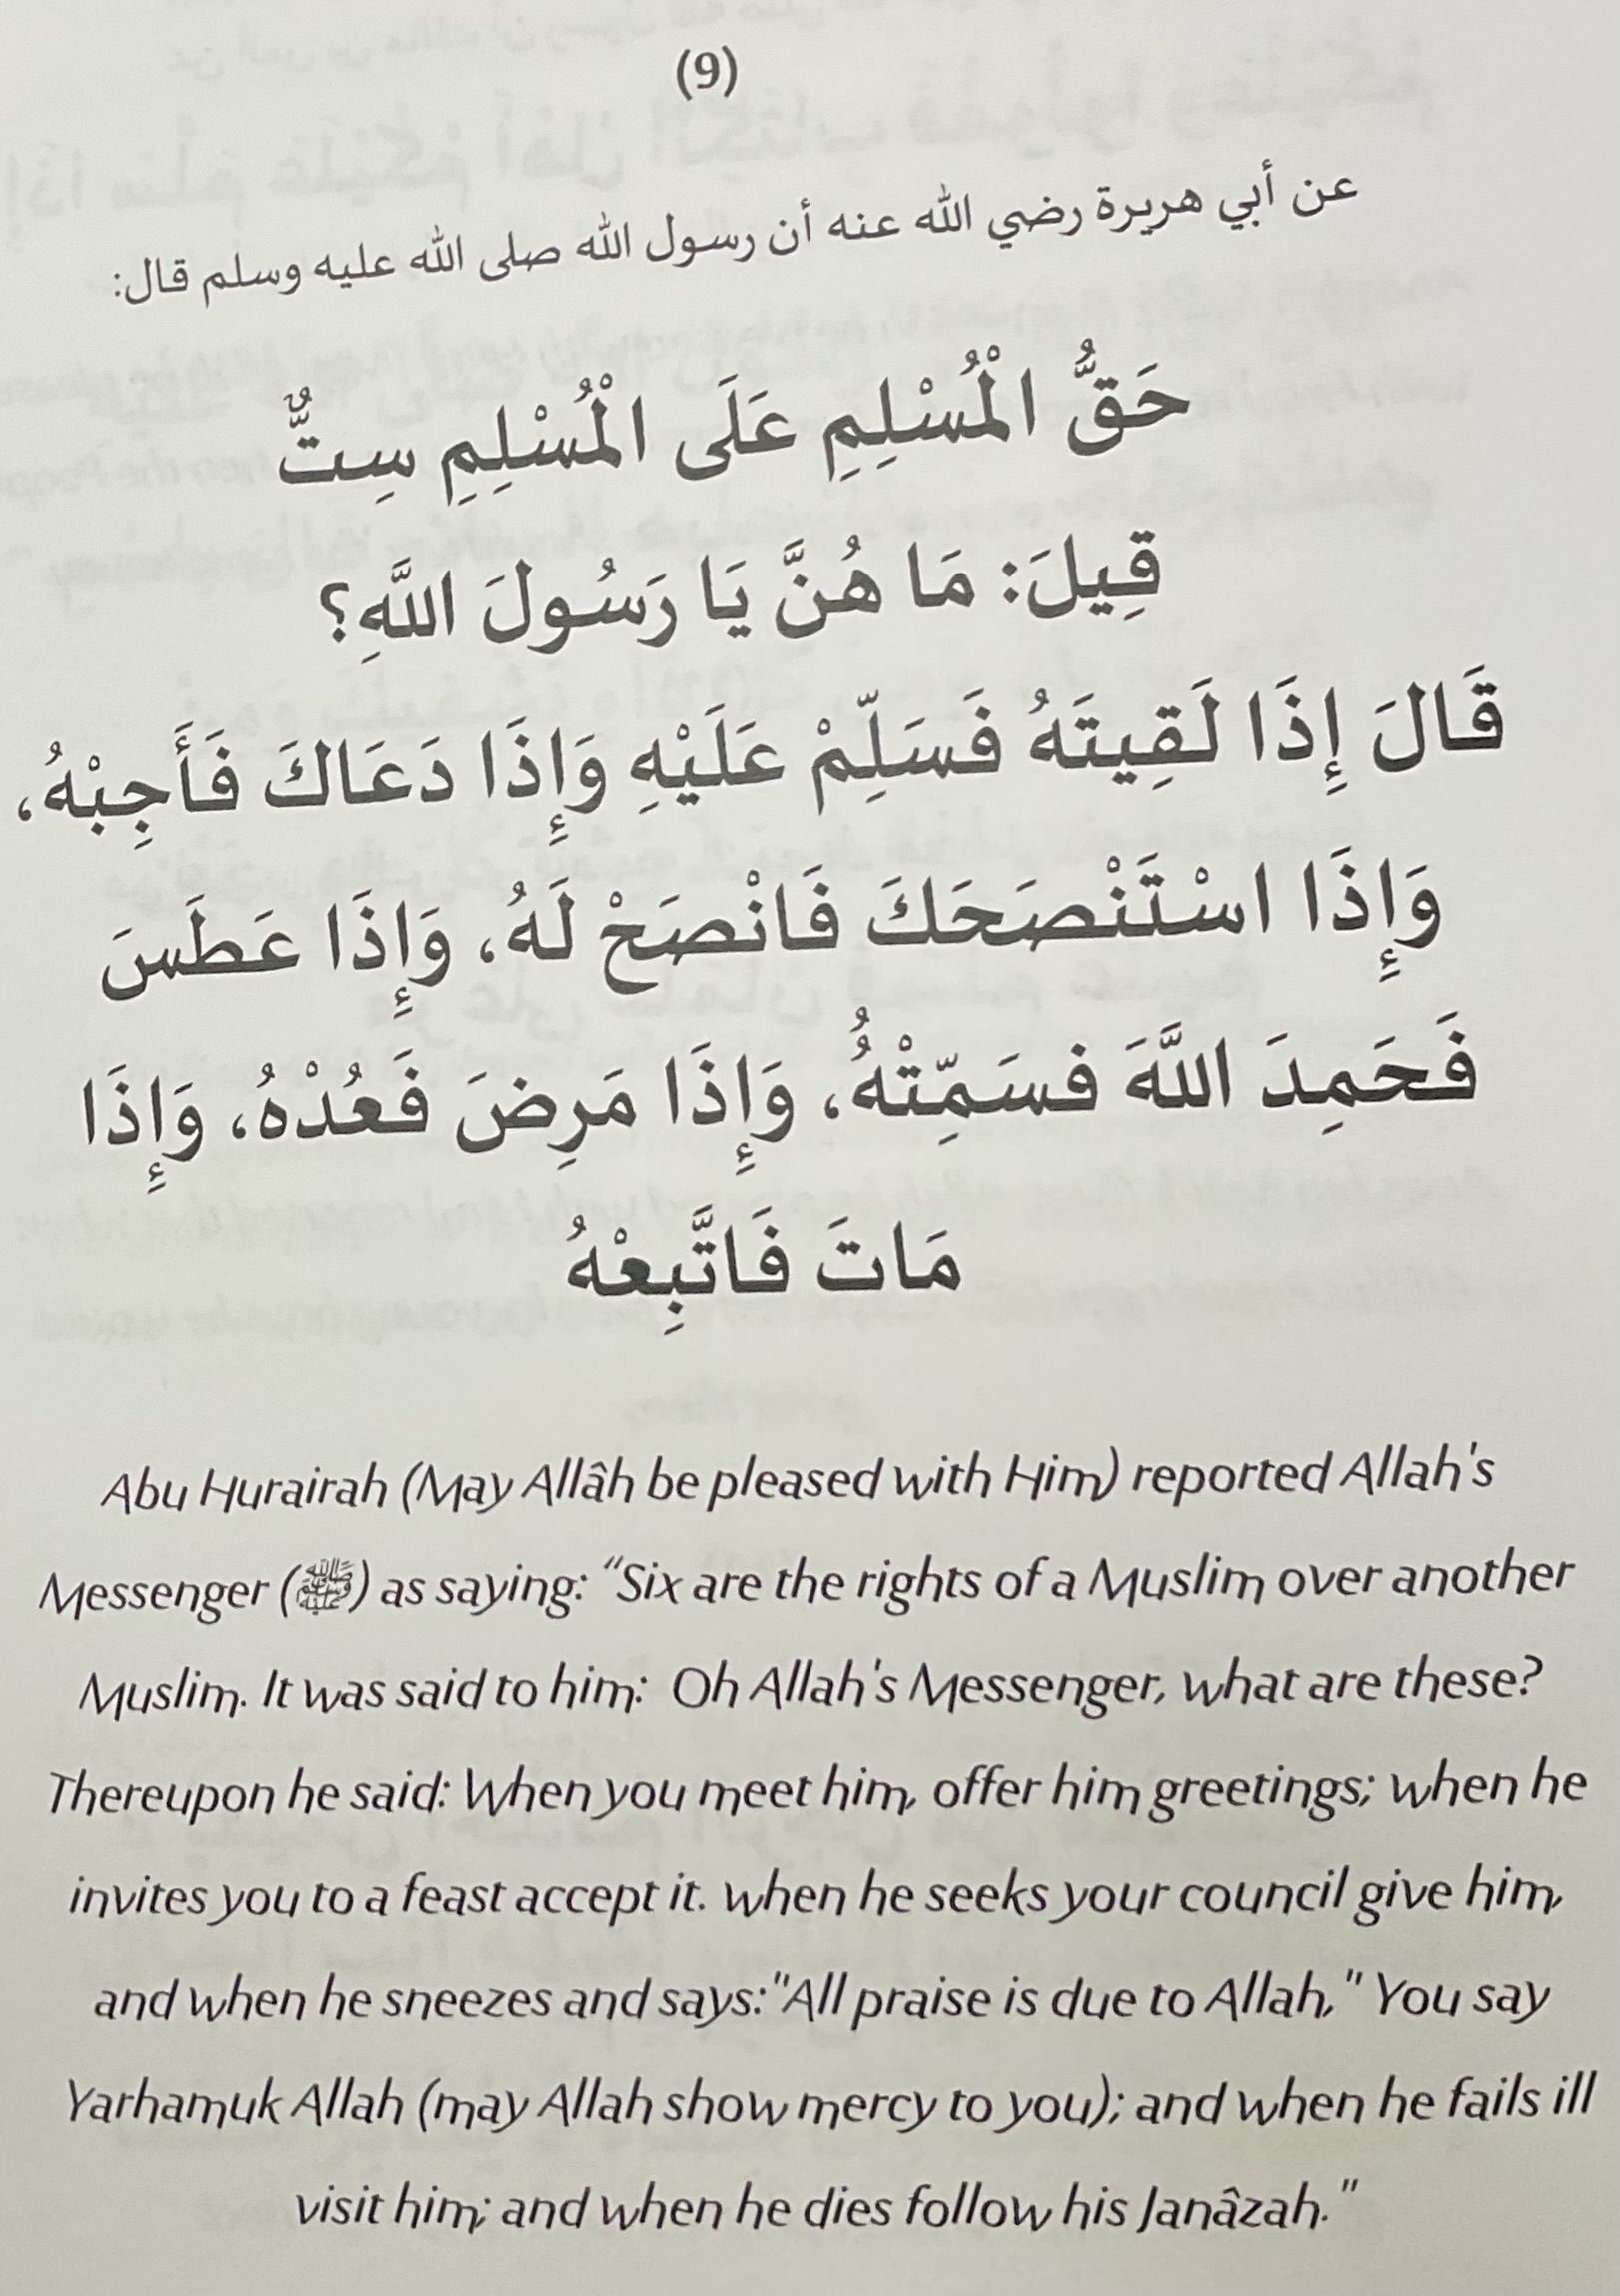 (9)
عن أبي هريرة رضي الله عنه أن رسول الله صلى الله عليه وسلم قال:
حَقُّ الْمُسْلِمِ عَلَى الْمُسْلِمِ سِتٌّ
قِيلَ: مَا هُنَّ يَا رَسُولَ اللَّهِ؟
قَالَ إِذَا لَقِيتَهُ فَسَلِّمْ عَلَيْهِ وَإِذَا دَعَاكَ فَأَجِبْهُ،
وَإِذَا اسْتَنْصَحَكَ فَانْصَحْ لَهُ، وَإِذَا عَطَسَ
فَحَمِدَ اللَّهَ فسَمِّتْهُُ، وَإِذَا مَرِضَ فَعُدْهُ، وَإِذَا
مَاتَ فَاتَّبِعْهُ
Abu Hurairah (May Allâh be pleased with Him) reported Allah's
Messenger (ﷺ) as saying: "Six are the rights of a Muslim over another
Muslim. It was said to him: Oh Allah's Messenger, what are these?
Thereupon he said: When you meet him, offer him greetings; when he
invites you to a feast accept it. when he seeks your council give him,
and when he sneezes and says:"All praise is due to Allah," You say
Yarhamuk Allah (may Allah show mercy to you); and when he fails ill
visit him; and when he dies follow his Janâzah."